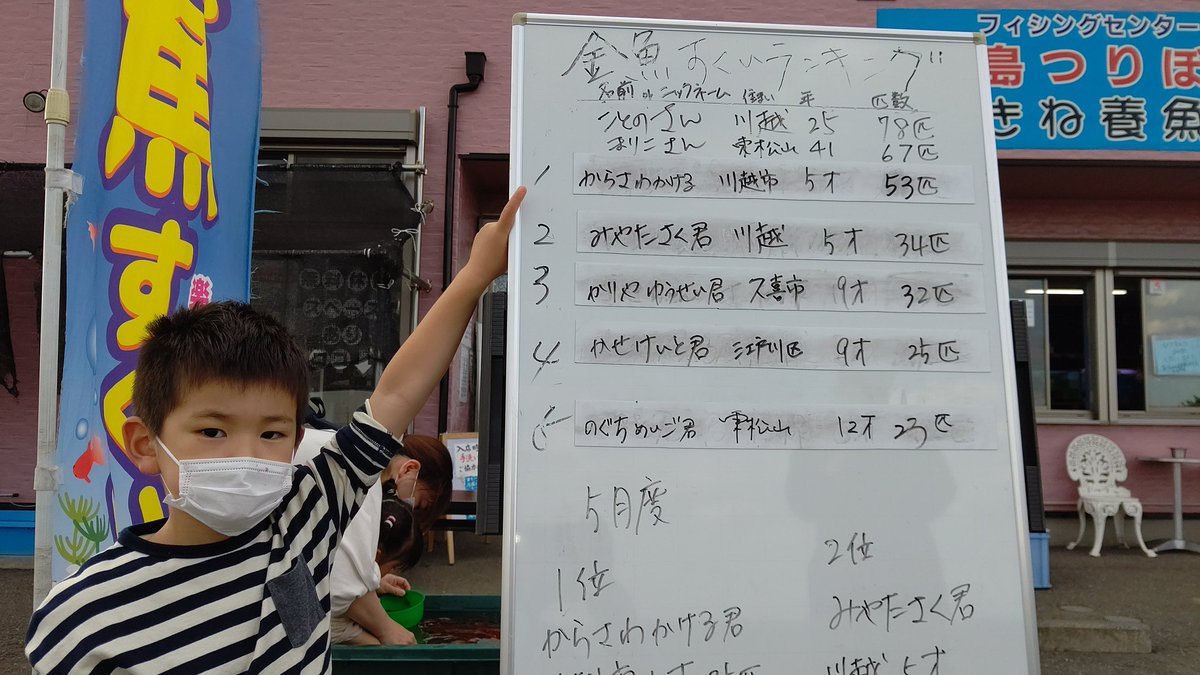 魚すく
楽
フィシングセンター
島つりぼ
きね養魚
金魚すくいランキング
名前 or ニックネーム 住まい 年 匹数
ことのさん 川越 25 78匹
まりこさん 東松山 41 67匹
1 からさわかける 川越市 5才 53匹
2 みやたさく君 川越 5才 34匹
3 かりやゆうせい君 久喜市 9才 32匹
4 かせけいと君 江戸川区 9才 25匹
5 のぐちめいご君 東松山 12才 23匹
5月度
1位
2位
からさわかける君
みやたさく君
川越 5才